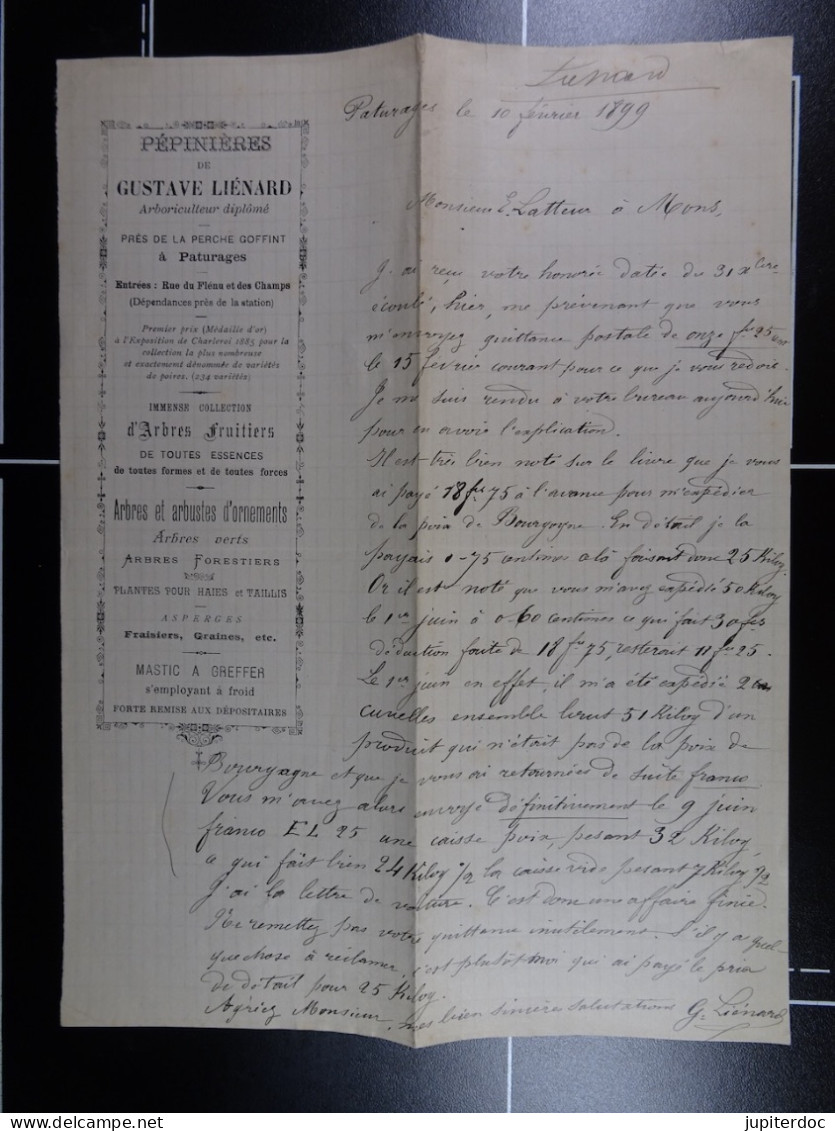 Lienard
Paturages le 10 février 1899
PÉPINIÈRES
DE
GUSTAVE LIÉNARD
Arboriculteur diplômé
PRÉS DE LA PERCHE GOFFINT
à Paturages
Entrées : Rue du Flénu et des Champs
(Dépendances près de la station)
Premier prix (Médaille d'or)
à l'Exposition de Charleroi 1885 pour la
collection la plus nombreuse
et exactement dénommée de variétés
de poires. (234 variétés)
IMMENSE COLLECTION
d'Arbres Fruitiers
DE TOUTES ESSENCES
de toutes formes et de toutes forces
Arbres et arbustes d'ornements
Arbres verts
ARBRES FORESTIERS
PLANTES POUR HAIES et TAILLIS
ASPERGES
Fraisiers, Graines, etc.
MASTIC A GREFFER
s'employant à froid
FORTE REMISE AUX DÉPOSITAIRES
Monsieur E. Latteur à Mons,
J'ai reçu votre honorée datée du 31 Xbre
écoulé, hier, me prévenant que vous
m'envoyez quittance postale de onze frs 25
le 15 fevrie courant pour ce que je vous redois.
Je me suis rendu à votre bureau aujourd'hui
pour en avoir l'explication.
Il est très bien noté sur le livre que je vous
ai payé 18 frs 75 à l'avance pour m'expédier
de la poix de Bourgogne. En détail je la
payais 0-75 centimes faisant donc 25 Kilog.
Or il est noté que vous m'avez expédié 50 Kilog
le 1er juin à 0 60 centimes ce qui fait 30 frs
déduction faite de 18 frs 75, resterait 11 frs 25.
Le 1er juin en effet, il m'a été expédié 2
cuvelles ensemble brut 51 Kilog d'un
produit qui n'était pas de la poix de
Bourgogne et que je vous ai retournées de suite franco
Vous m'avez alors envoyé définitivement le 9 juin
franco EL 25 une caisse poix, pesant 32 Kilog
ce qui fait bien 24 Kilog 1/2 la caisse vide pesant 7 Kilog 1/2
J'ai la lettre de voiture. C'est donc une affaire finie.
Ne remettez pas votre quittance inutilement. S'il y a quel-
que chose à réclamer, c'est plutôt moi qui ai payé le prix
de détail pour 25 Kilog.
Agréez Monsieur, mes bien sincères salutations G. Liénard
jupiterdoc